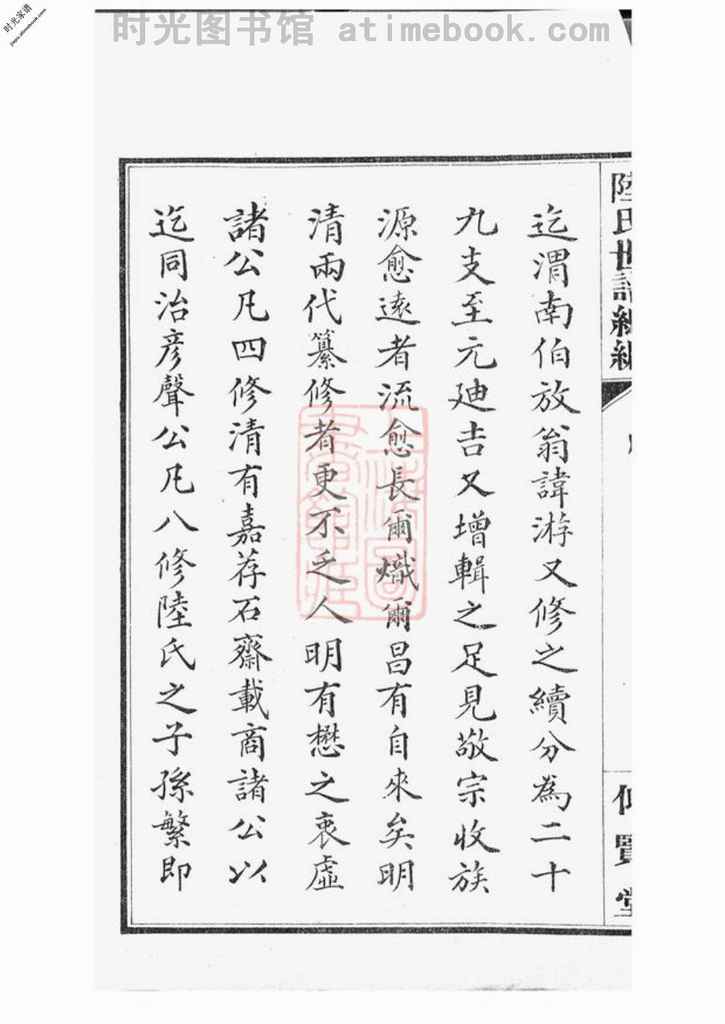 时光家谱
jiapu.atimebook.com
时光图书馆 atimebook.com
陸氏世譜續編
迄渭南伯放翁諱游又修之續分為二十
九支至元廸吉又增輯之足見敬宗收族
源愈遠者流愈長爾熾爾昌有自來矣明
清兩代纂修者更不乏人明有懋之衷虛
諸公凡四修清有嘉荐石齋載商諸公以
迄同治彥聲公凡八修陸氏之子孫繁即
賢堂